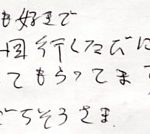 も好きで
一回行くたびに
てもらってます
ごちそうさま